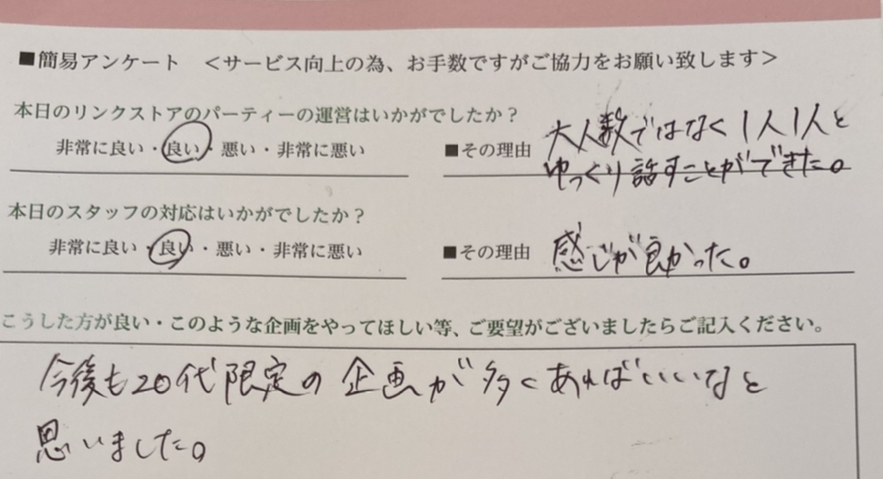 ■簡易アンケート <サービス向上の為、お手数ですがご協力をお願い致します>
本日のリンクストアのパーティーの運営はいかがでしたか?
非常に良い・良い・悪い・非常に悪い
■その理由 大人数ではなく1人1人と
ゆっくり話すことができた。
本日のスタッフの対応はいかがでしたか?
非常に良い・良い・悪い・非常に悪い
■その理由 感じが良かった。
こうした方が良い・このような企画をやってほしい等、ご要望がございましたらご記入ください。
今後も20代限定の企画が多くあればいいなと
思いました。